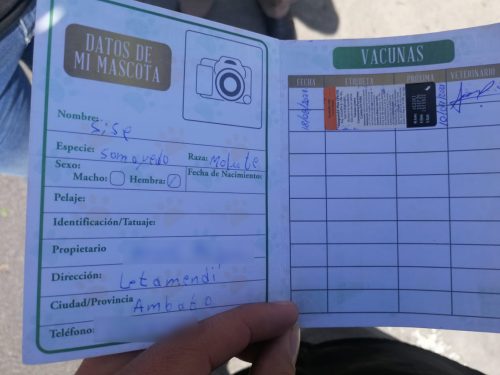 DATOS DE
MI MASCOTA
Nombre: Sisy
Especie: Somoyedo Raza: Mofule
Sexo:
Macho: Hembra: Fecha de Nacimiento:
Pelaje:
Identificación/Tatuaje:
Propietario
Dirección: Letamendi
Ciudad/Provincia Ambato
Teléfono:
VACUNAS
FECHA ETIQUETA PRÓXIMA VETERINARIO